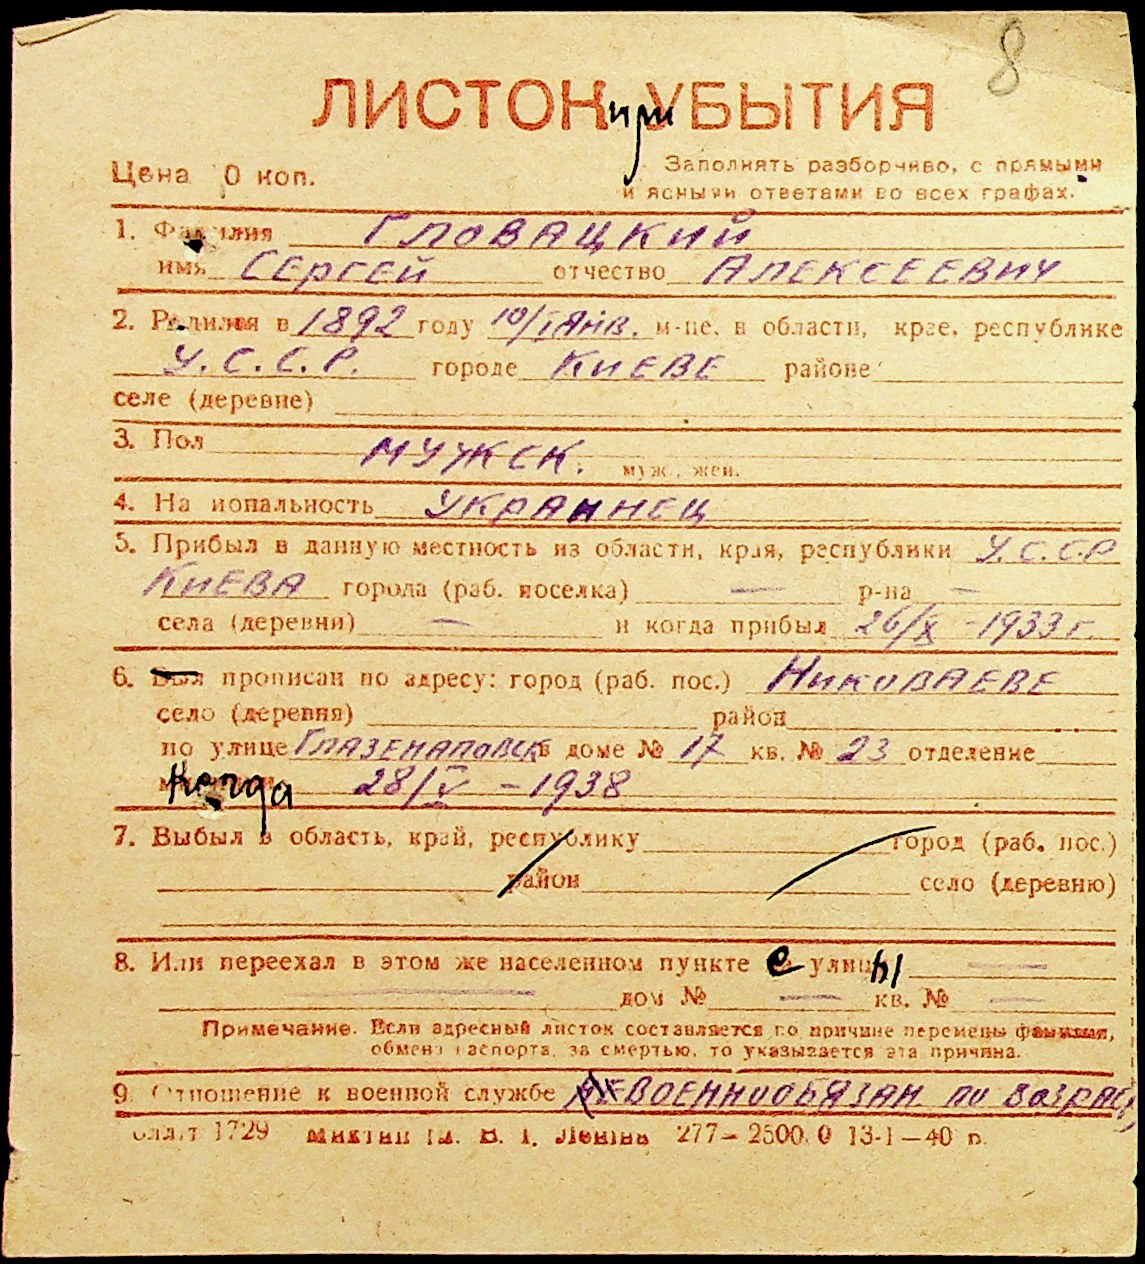 8
ЛИСТОК при УБЫТИЯ
Цена 0 коп. Заполнять разборчиво, с прямыми
и ясными ответами во всех графах.
1. Фамилия ГЛОВАЦКИЙ
имя СЕРГЕЙ отчество АЛЕКСЕЕВИЧ
2. Родился в 1892 году 10/I ЯНВ. м-це, в области, крае, республике
У.С.С.Р. городе КИЕВЕ районе
селе (деревне)
3. Пол МУЖСК. муж., жен.
4. Национальность УКРАИНЕЦ
5. Прибыл в данную местность из области, края, республики У.С.С.Р
КИЕВА города (раб. поселка) — р-на —
села (деревни) — и когда прибыл 26/X - 1933 г.
6. Был прописан по адресу: город (раб. пос.) НИКОЛАЕВЕ
село (деревня) район
по улице ГЛАЗЕНАПОВСК в доме № 17 кв. № 23 отделение
Когда 28/V - 1938
7. Выбыл в область, край, республику город (раб. пос.)
район село (деревню)
8. Или переехал в этом же населенном пункте с улицы —
— дом № — кв. № —
Примечание. Если адресный листок составляется по причине перемены фамилии,
обмена паспорта, за смертью, то указывается эта причина.
9. Отношение к военной службе НЕВОЕННООБЯЗАН ПО ВОЗРАСТ
1729 им. В. И. Ленина 277— 2500.0 13-I—40 г.